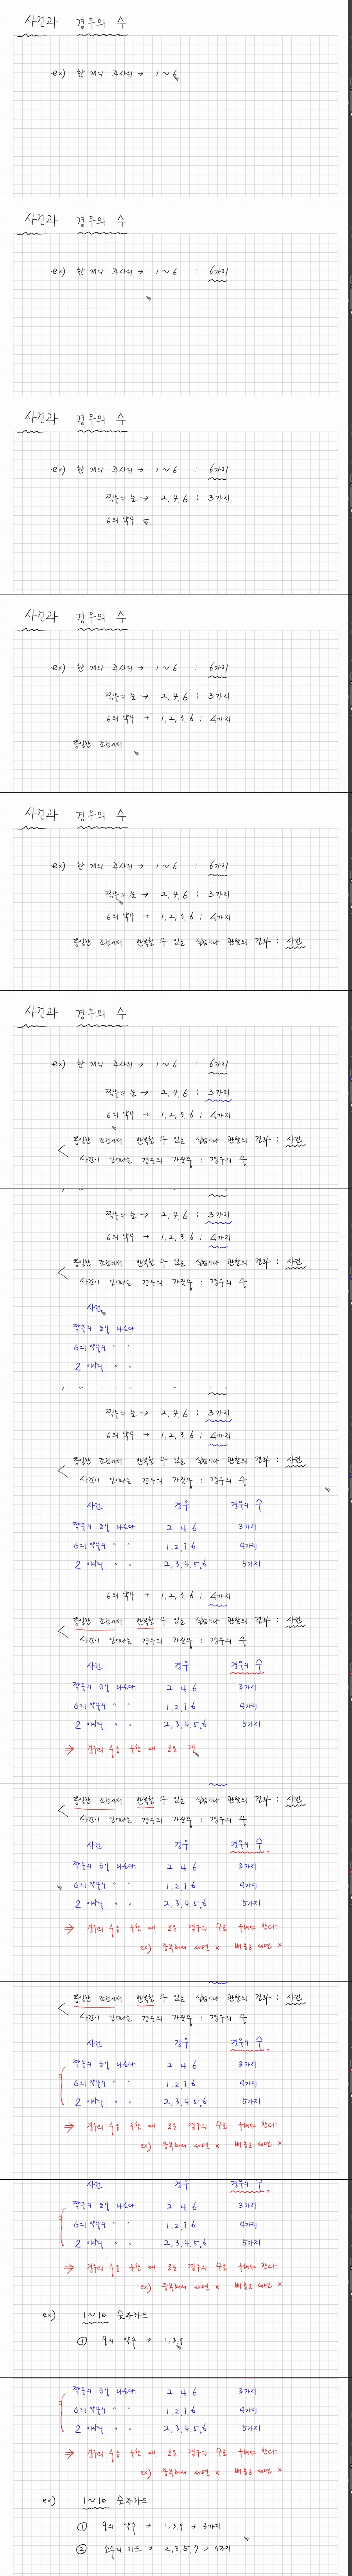 사건과 경우의 수
ex) 한 개의 주사위 → 1 ~ 6
사건과 경우의 수
ex) 한 개의 주사위 → 1 ~ 6 : 6가지
사건과 경우의 수
ex) 한 개의 주사위 → 1 ~ 6 : 6가지
짝수의 눈 → 2, 4 6 : 3가지
6의 약수
사건과 경우의 수
ex) 한 개의 주사위 → 1 ~ 6 : 6가지
짝수의 눈 → 2, 4 6 : 3가지
6의 약수 → 1, 2, 3, 6 : 4가지
동일한 조건에서
사건과 경우의 수
ex) 한 개의 주사위 → 1 ~ 6 : 6가지
짝수의 눈 → 2, 4 6 : 3가지
6의 약수 → 1, 2, 3, 6 : 4가지
동일한 조건에서 반복할 수 있는 실험이나 관찰의 결과 : 사건
사건과 경우의 수
ex) 한 개의 주사위 → 1 ~ 6 : 6가지
짝수의 눈 → 2, 4 6 : 3가지
6의 약수 → 1, 2, 3, 6 : 4가지
동일한 조건에서 반복할 수 있는 실험이나 관찰의 결과 : 사건
사건이 일어나는 경우의 가짓수 : 경우의 수
짝수의 눈 → 2, 4 6 : 3가지
6의 약수 → 1, 2, 3, 6 : 4가지
동일한 조건에서 반복할 수 있는 실험이나 관찰의 결과 : 사건
사건이 일어나는 경우의 가짓수 : 경우의 수
사건
짝수의 눈이 나온다
6의 약수의 " "
2 이상의 " "
짝수의 눈 → 2, 4 6 : 3가지
6의 약수 → 1, 2, 3, 6 : 4가지
동일한 조건에서 반복할 수 있는 실험이나 관찰의 결과 : 사건
사건이 일어나는 경우의 가짓수 : 경우의 수
사건 경우 경우의 수
짝수의 눈이 나온다 2 4 6 3가지
6의 약수의 " " 1, 2 3, 6 4가지
2 이상의 " " 2, 3, 4, 5, 6 5가지
6의 약수 → 1, 2, 3, 6 : 4가지
동일한 조건에서 반복할 수 있는 실험이나 관찰의 결과 : 사건
사건이 일어나는 경우의 가짓수 : 경우의 수
사건 경우 경우의 수
짝수의 눈이 나온다 2 4 6 3가지
6의 약수의 " " 1, 2 3, 6 4가지
2 이상의 " " 2, 3, 4, 5, 6 5가지
⇒ 경우의 수를 구할 때 모든
동일한 조건에서 반복할 수 있는 실험이나 관찰의 결과 : 사건
사건이 일어나는 경우의 가짓수 : 경우의 수
사건 경우 경우의 수
짝수의 눈이 나온다 2 4 6 3가지
6의 약수의 " " 1, 2 3, 6 4가지
2 이상의 " " 2, 3, 4, 5, 6 5가지
⇒ 경우의 수를 구할 때 모든 경우의 수를 구해야 한다.
ex) 중복해서 세면 x 빠트리고 세면 x
동일한 조건에서 반복할 수 있는 실험이나 관찰의 결과 : 사건
사건이 일어나는 경우의 가짓수 : 경우의 수
사건 경우 경우의 수
짝수의 눈이 나온다 2 4 6 3가지
6의 약수의 " " 1, 2 3, 6 4가지
2 이상의 " " 2, 3, 4, 5, 6 5가지
⇒ 경우의 수를 구할 때 모든 경우의 수를 구해야 한다.
ex) 중복해서 세면 x 빠트리고 세면 x
사건 경우 경우의 수
짝수의 눈이 나온다 2 4 6 3가지
6의 약수의 " " 1, 2 3, 6 4가지
2 이상의 " " 2, 3, 4, 5, 6 5가지
⇒ 경우의 수를 구할 때 모든 경우의 수를 구해야 한다.
ex) 중복해서 세면 x 빠트리고 세면 x
ex) 1 ~ 10 숫자카드
① 9의 약수 → 1, 3, 9
짝수의 눈이 나온다 2 4 6 3가지
6의 약수의 " " 1, 2 3, 6 4가지
2 이상의 " " 2, 3, 4, 5, 6 5가지
⇒ 경우의 수를 구할 때 모든 경우의 수를 구해야 한다.
ex) 중복해서 세면 x 빠트리고 세면 x
ex) 1 ~ 10 숫자카드
① 9의 약수 → 1, 3, 9 → 3가지
② 소수의 카드 → 2, 3, 5, 7 → 4가지